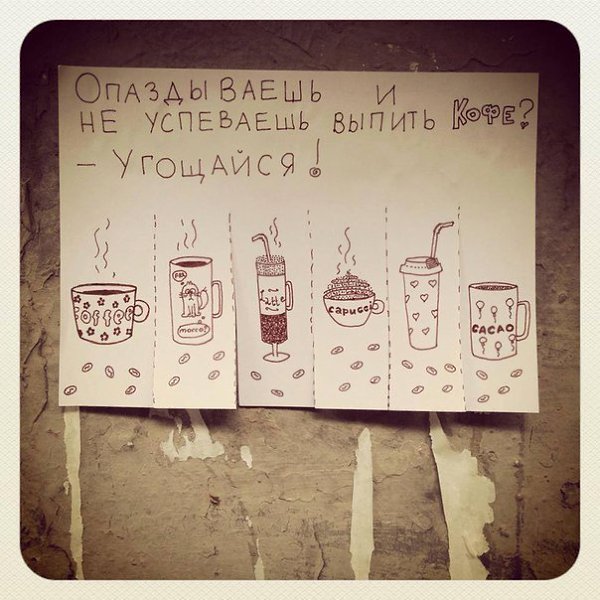 Опаздываешь и
не успеваешь выпить кофе?
– Угощайся!
coffee
morree!
Latte
capucci
CACAO